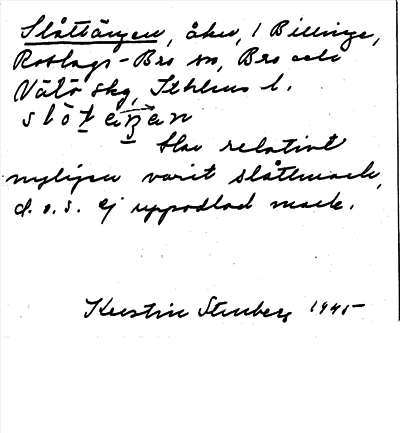 Slåttängen, åker, 1 Billinge,
Roslags-Bro sn, Bro och
Vätö skg, Sthlms l.
slòt eŋen
Har relativt
nyligen varit slåttmark,
d.v.s. ej uppodlad mark.
Kerstin Stenberg 1945